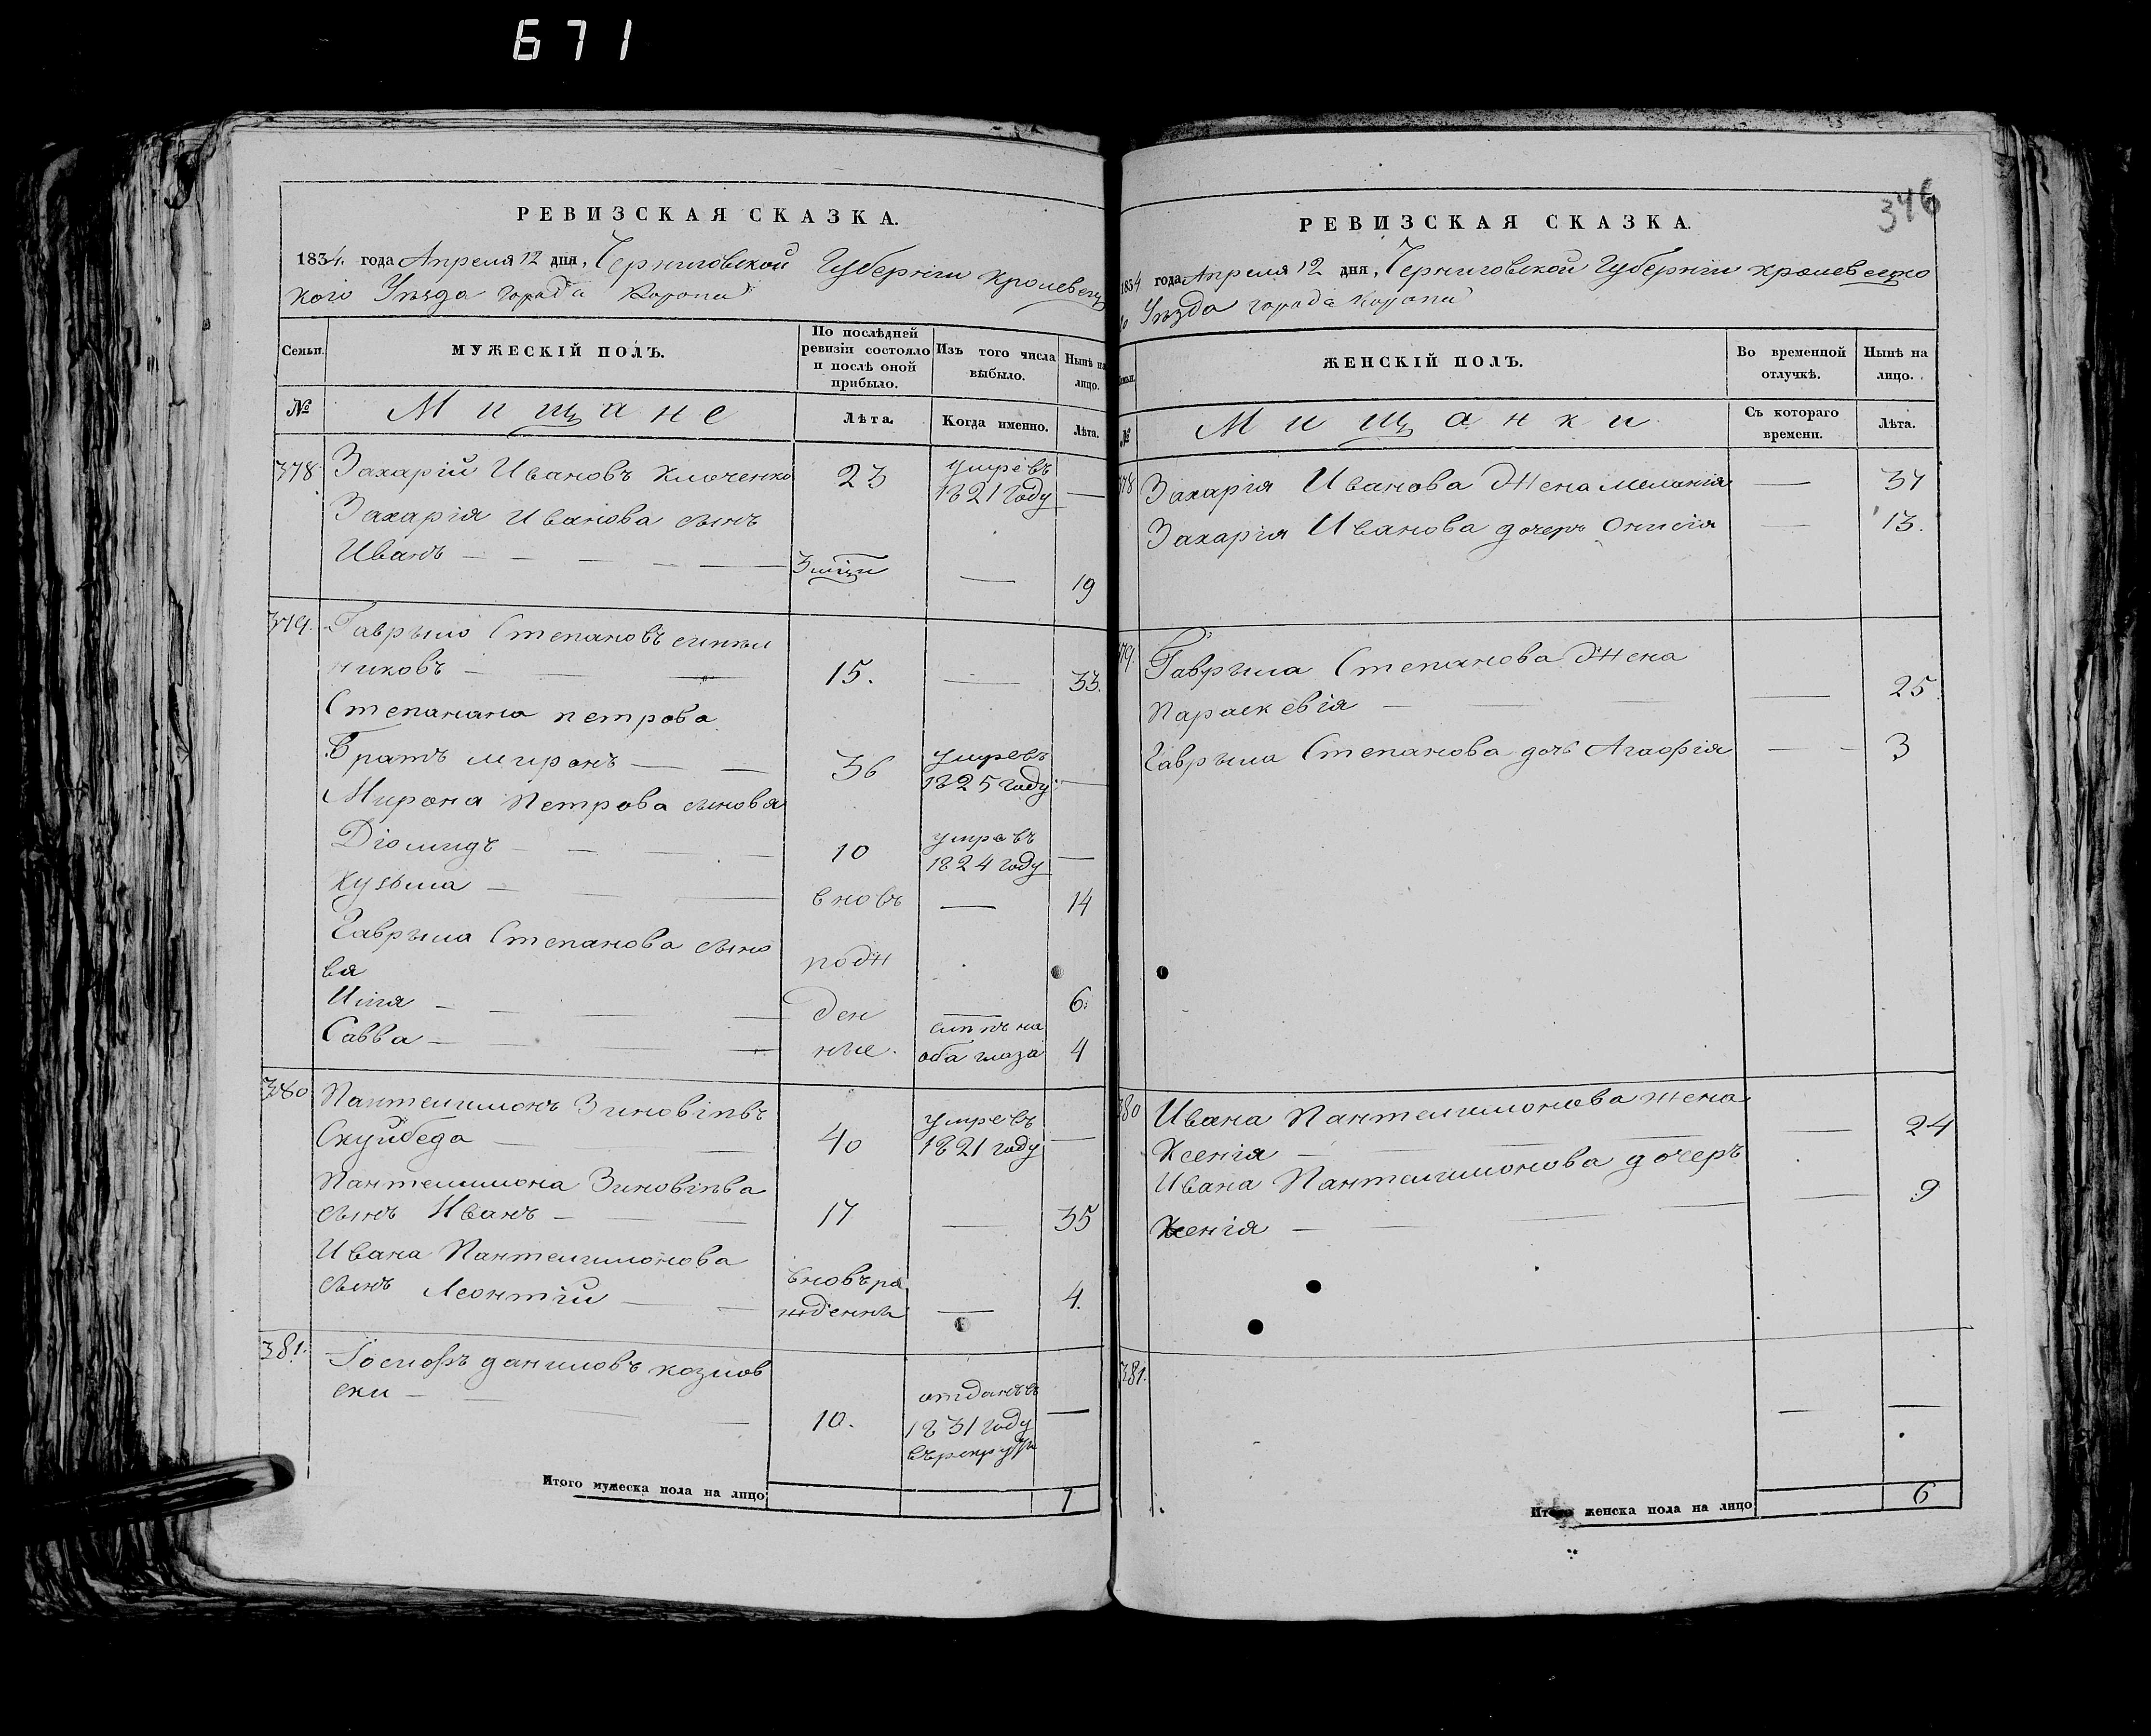 671
РЕВИЗСКАЯ СКАЗКА.
1834. года Апреля 12 дня, Черниговской Губернiи Кролевец
кого Уѣзда города Коропа
Семьи.
МУЖЕСКIЙ ПОЛЪ.
По послѣдней ревизiи состояло и послѣ оной прибыло.
Изъ того числа выбыло.
Нынѣ на лицо.
№
Мищане
Лѣта.
Когда именно.
Лѣта.
378 Захарiй Ивановъ Ключенко 23 умре въ 1821 году —
Захарiя Иванова сынъ
Иванъ — 3 — 19
379. Гаврыло Степановъ
никовъ — 15. — 33.
Степанана петрова
Братъ миронъ — 36 умре въ 1825 году —
Мирона Петрова сыновя
Дiомидъ — 10 умре въ 1824 году —
Кузьма — вновь — 14
Гаврыла Степанова сыно
вя
Илiя — — 6.
Савва — слѣпъ на оба глаза 4
380 Пантелимонъ Зиновiѣвъ
Скуйбеда — 40 умре въ 1821 году —
Пантелимона Зиновiѣва
сынъ Иванъ — 17 — 35
Ивана Пантелимонова
сынъ Леонтiй — — 4.
381. Iосифъ даниловъ козлов
ски — 10. отданъ въ 1831 году —
Итого мужеска пола на лицо 7
346
РЕВИЗСКАЯ СКАЗКА.
1834 года Апреля 12 дня, Черниговской Губернiи Кролевецко
го Уѣзда города Коропа
Семьи.
ЖЕНСКIЙ ПОЛЪ.
Во временной отлучкѣ.
Нынѣ на лицо.
№
Мищанки
Съ котораго времени.
Лѣта.
378 Захарiя Иванова Жена Меланiя — 37
Захарiя Иванова дочеръ Онисiя — 13.
379. Гаврыла Степанова Жена
Параскевiя — — 25.
Гаврыла Степанова дочъ Агафiя — 3
380 Ивана Пантелимонова жена
Ксенiя — — 24
Ивана Пантелимонова дочеръ
Ксенiя — — 9
381. — —
Итого женска пола на лицо 6